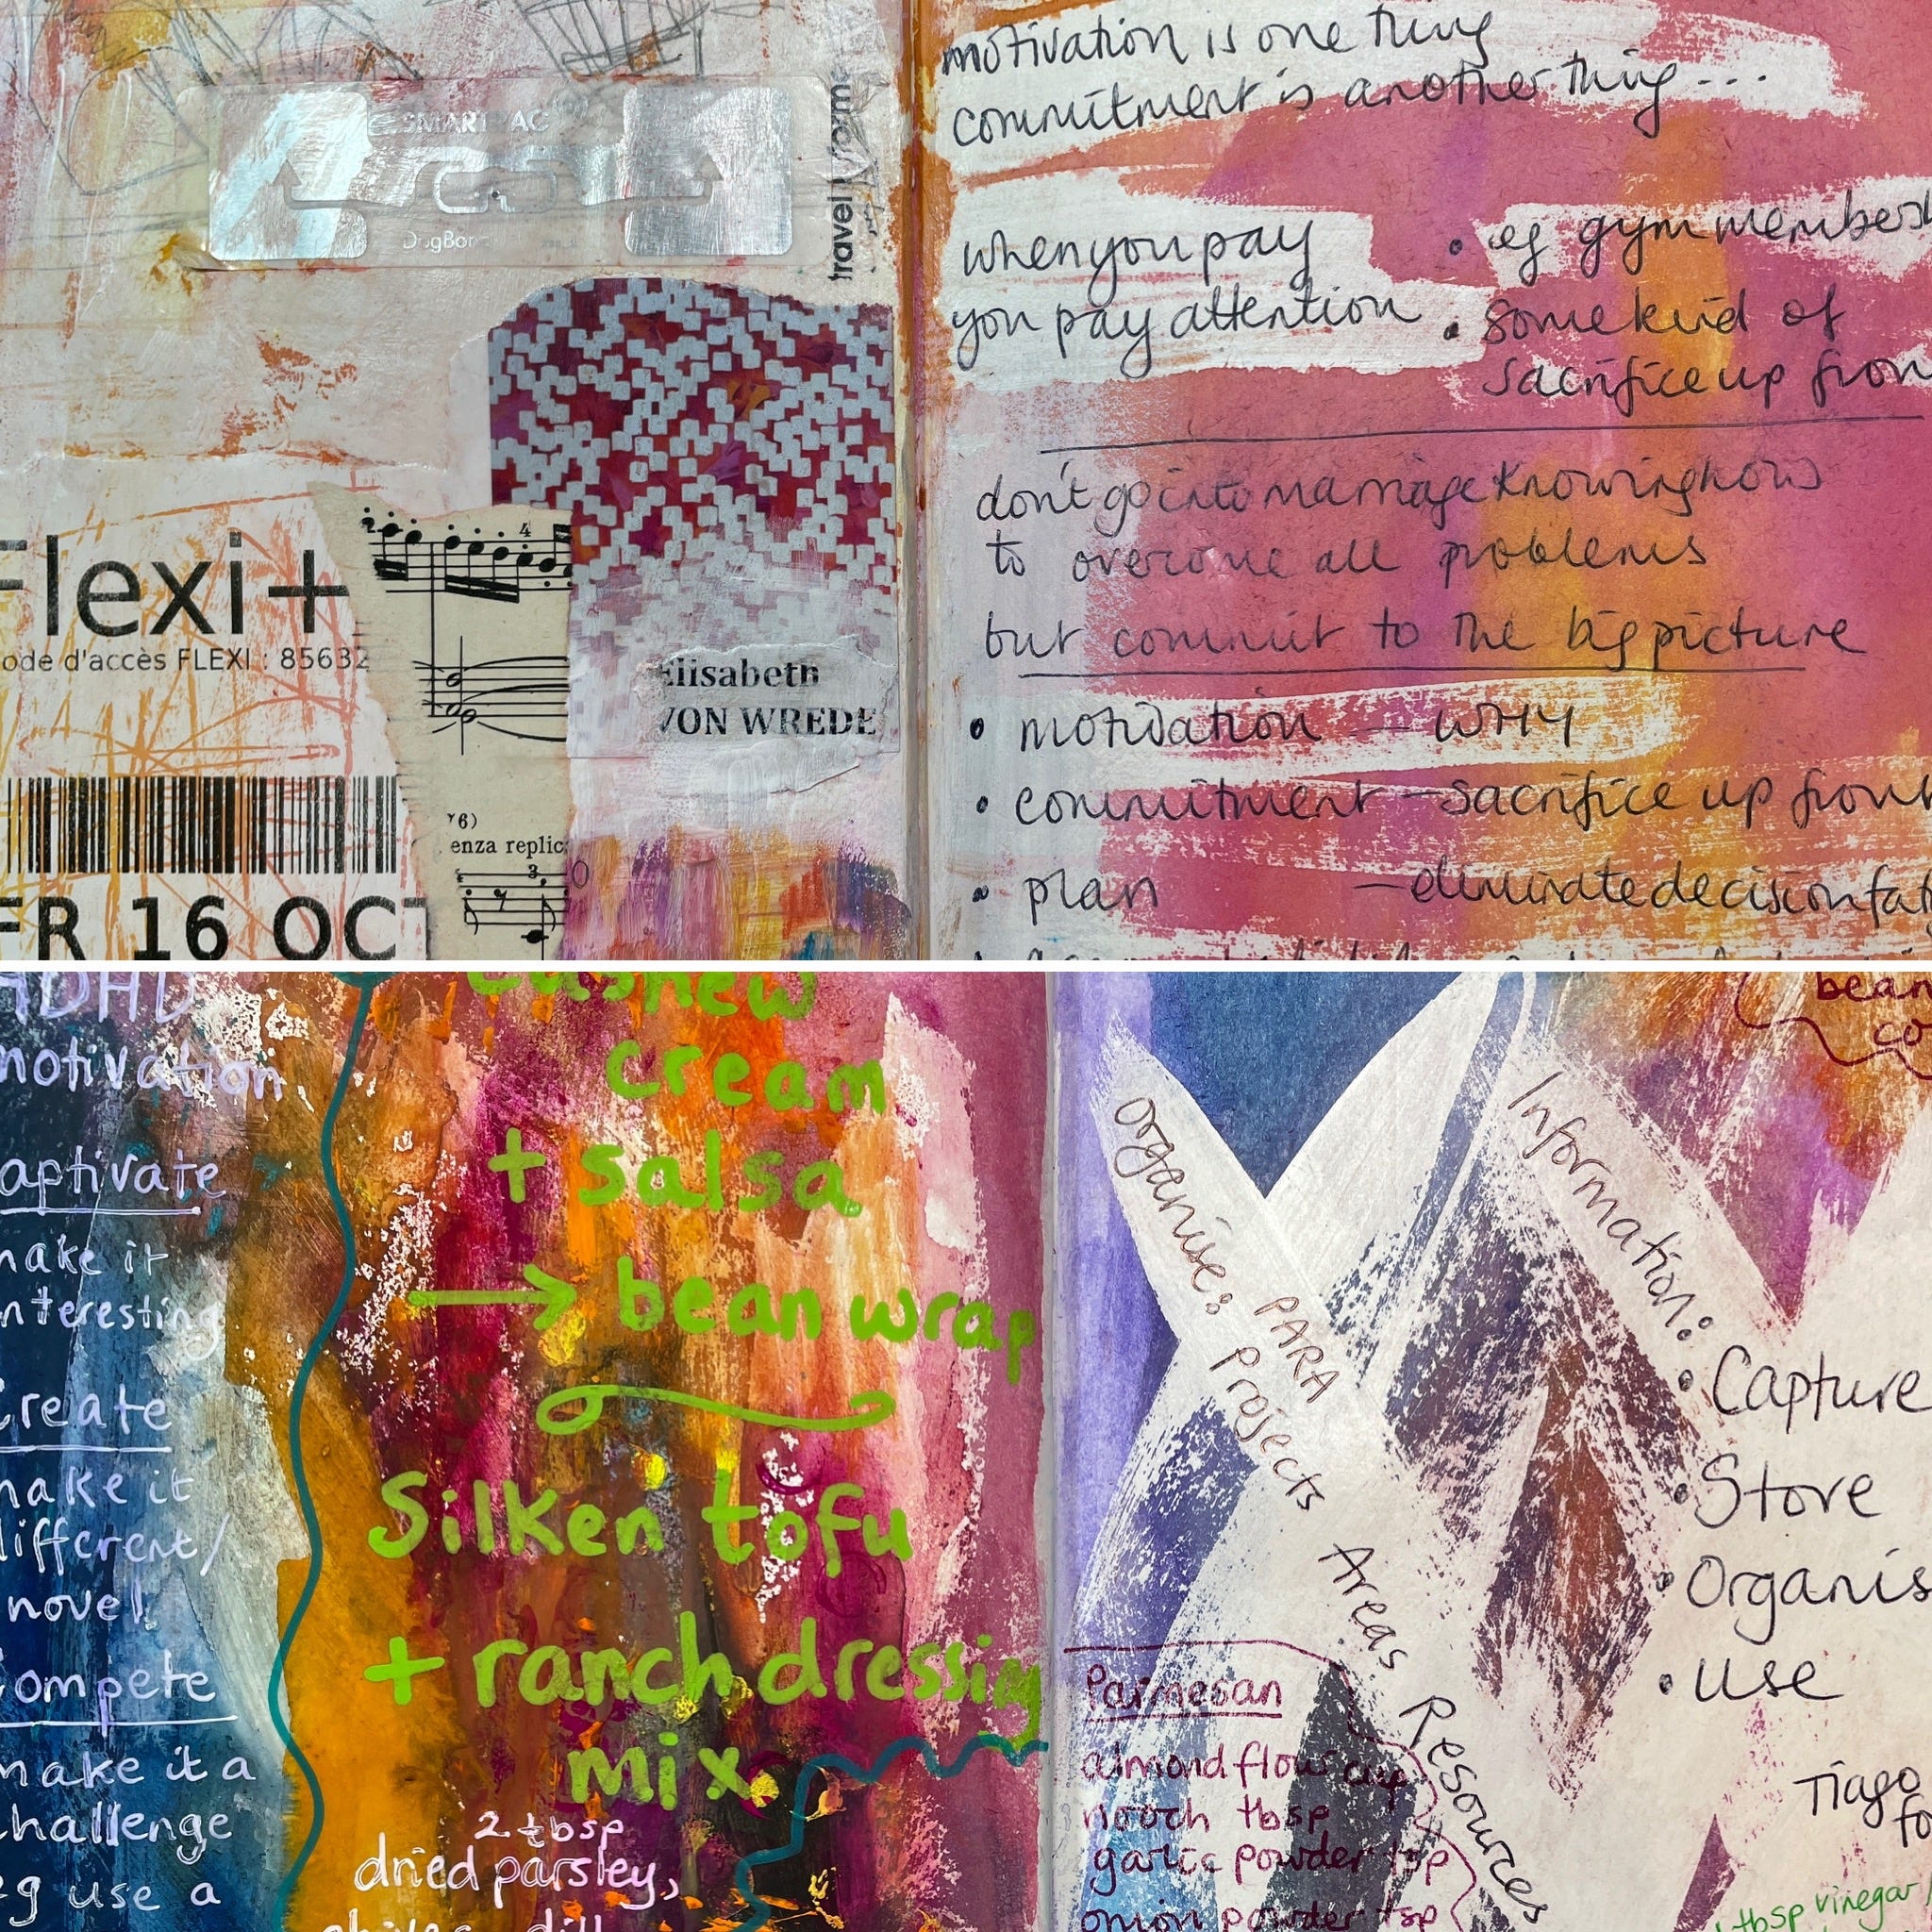 SMARTRAC
DogBone
travel
Flexi+
ode d'accès FLEXI : 85632
FR 16 OCT
4
enza replic
3
Elisabeth
VON WREDE
motivation is one thing
commitment is another thing...
when you pay
you pay attention
• eg gym membersh
• some kind of
sacrifice up fron
don't go into marriage knowing how
to overcome all problems
but commit to the big picture
• motivation — WHY
• commitment — sacrifice up front
• plan — eliminate decision fat
ADHD
motivation
captivate
make it
interesting
Create
make it
different/
novel
Compete
make it a
challenge
eg use a
Cashew
cream
+ salsa
→ bean wrap
Silken tofu
+ ranch dressing
mix
2 tbsp
dried parsley,
chives, dill
Organise: PARA
Projects
Areas
Resources
Information:
• Capture
• Store
• Organis
• Use
Tiago
fo
bean
co
Parmesan
almond flour cup
nooch tbsp
garlic powder tsp
onion powder tsp
tbsp vinegar